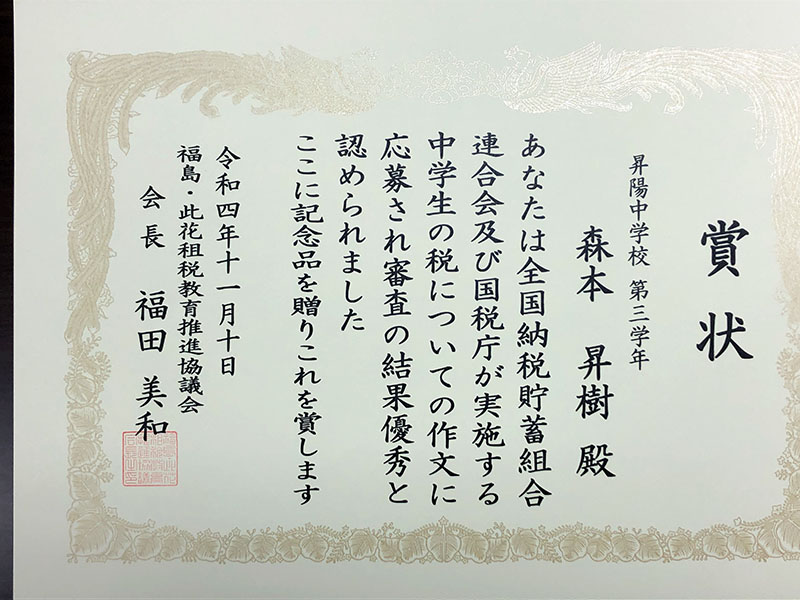 賞状
昇陽中学校 第三学年
森本 昇樹 殿
あなたは全国納税貯蓄組合
連合会及び国税庁が実施する
中学生の税についての作文に
応募され審査の結果優秀と
認められました
ここに記念品を贈りこれを賞します
令和四年十一月十日
福島・此花租税教育推進協議会
会長 福田 美和